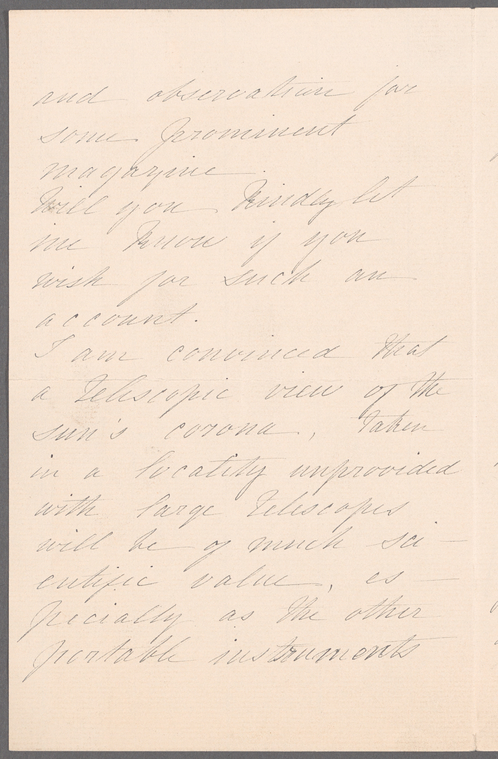 and observation for
some prominent
magazine.
Will you kindly let
me know if you
wish for such an
account.
I am convinced that
a telescopic view of the
sun's corona, taken
in a locality unprovided
with large telescopes
will be of much sci-
entific value, es-
pecially as the other
portable instruments